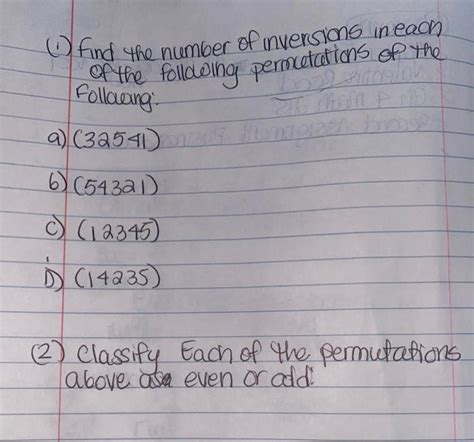 (1) find the number of inversions in each
of the following permutations of the
Following:
a) (32541)
b) (54321)
c) (12345)
D) (14235)
(2) Classify Each of the permutations
above as even or odd: